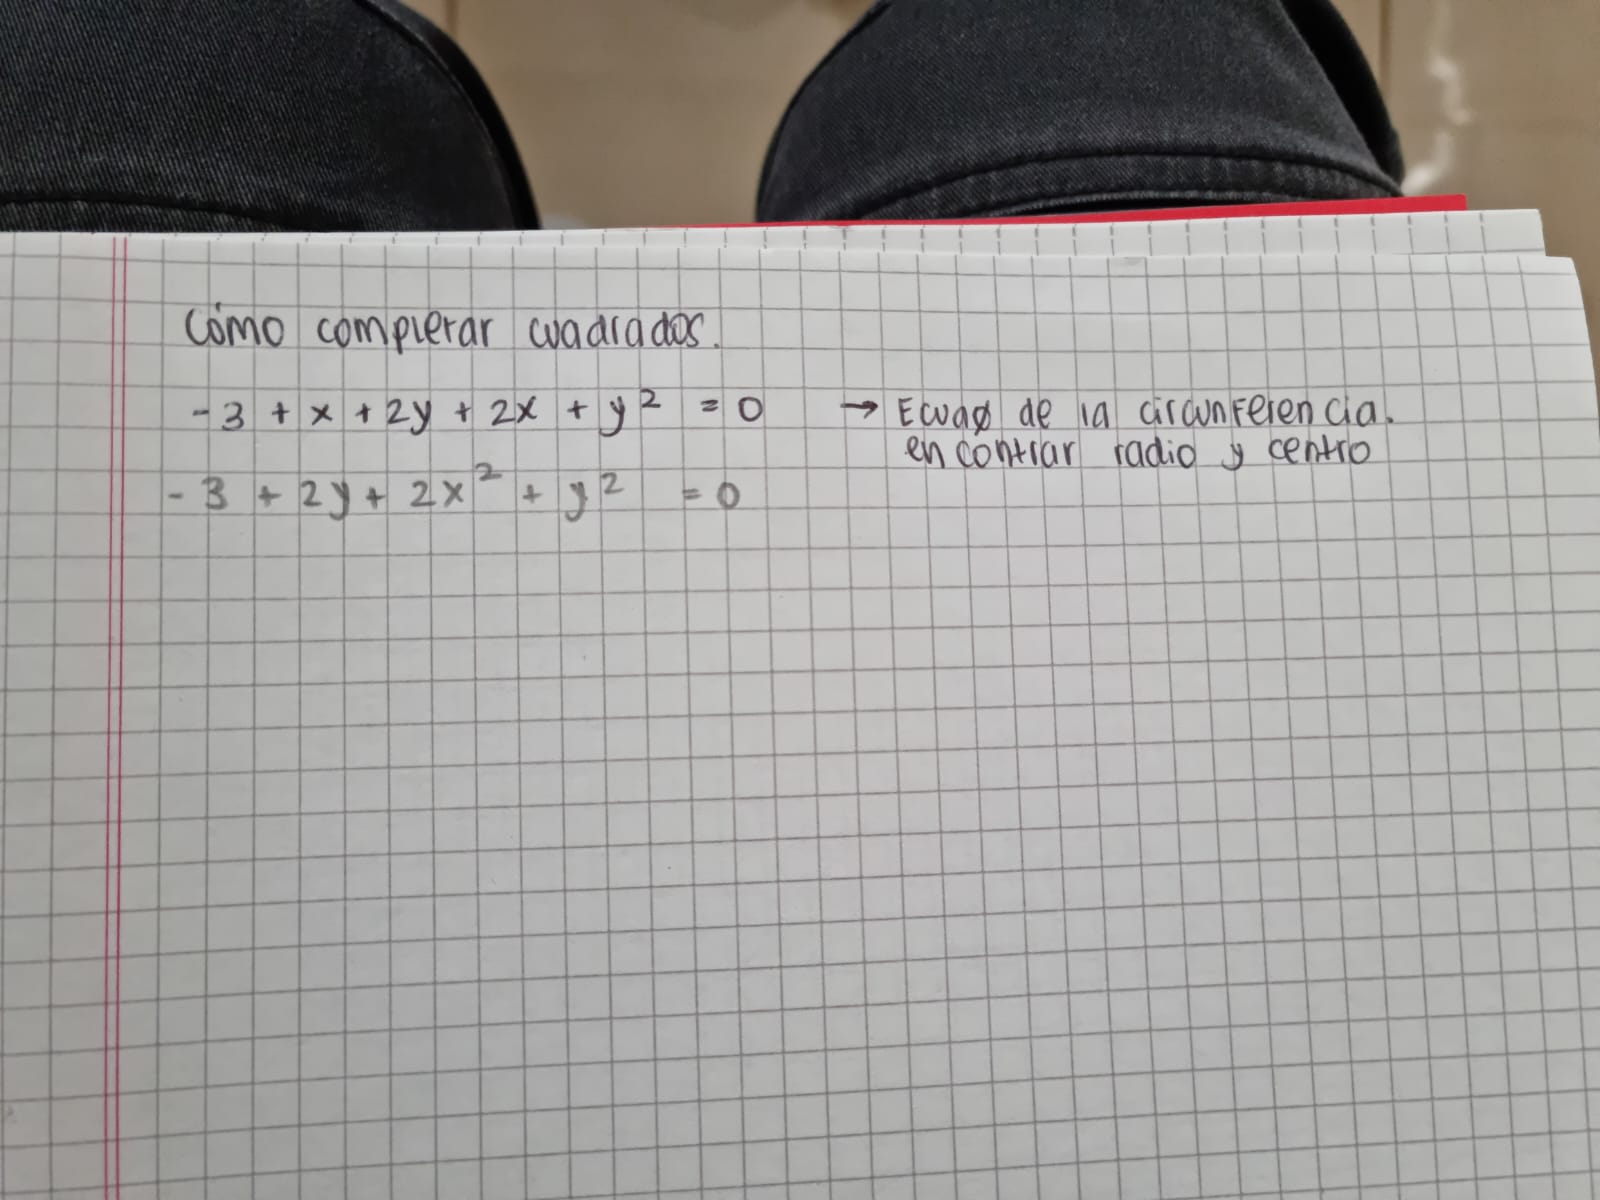 Cómo completar cuadrados.
-3 + x + 2y + 2x + y² = 0 → Ecuaø de la circunferencia.
encontrar radio y centro
-3 + 2y + 2x² + y² = 0